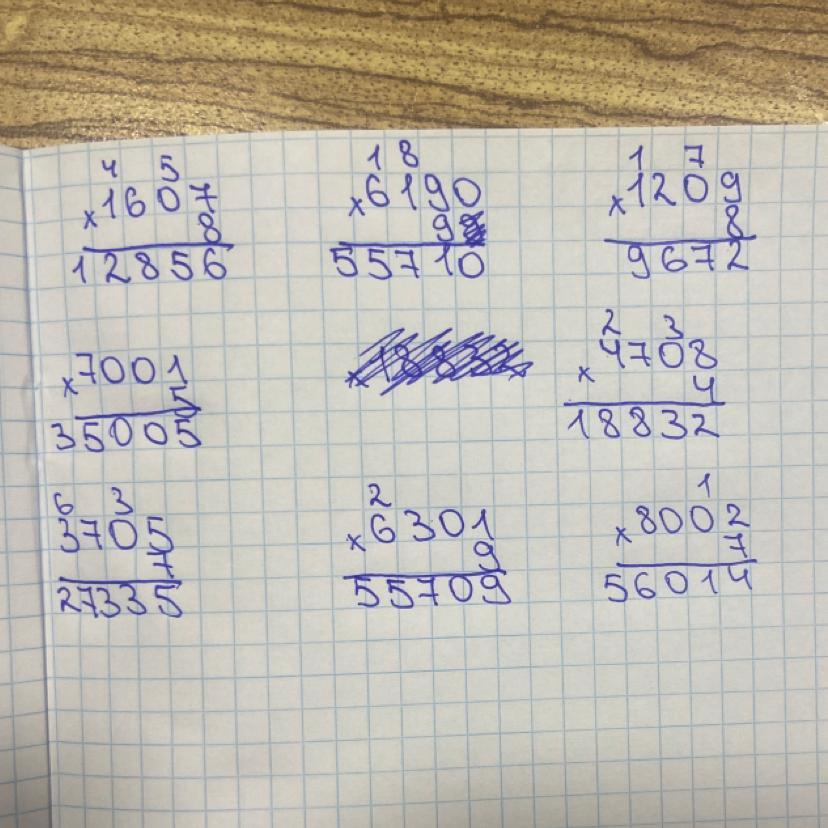 4 5 1 8 1 7
×1607 ×6190 ×1209
8 9 8
12856 55710 9672
2 3
×7001 ×4708
5 4
35005 18832
6 3 2 1
3705 ×6301 ×8002
7 9 7
27335 55709 56014